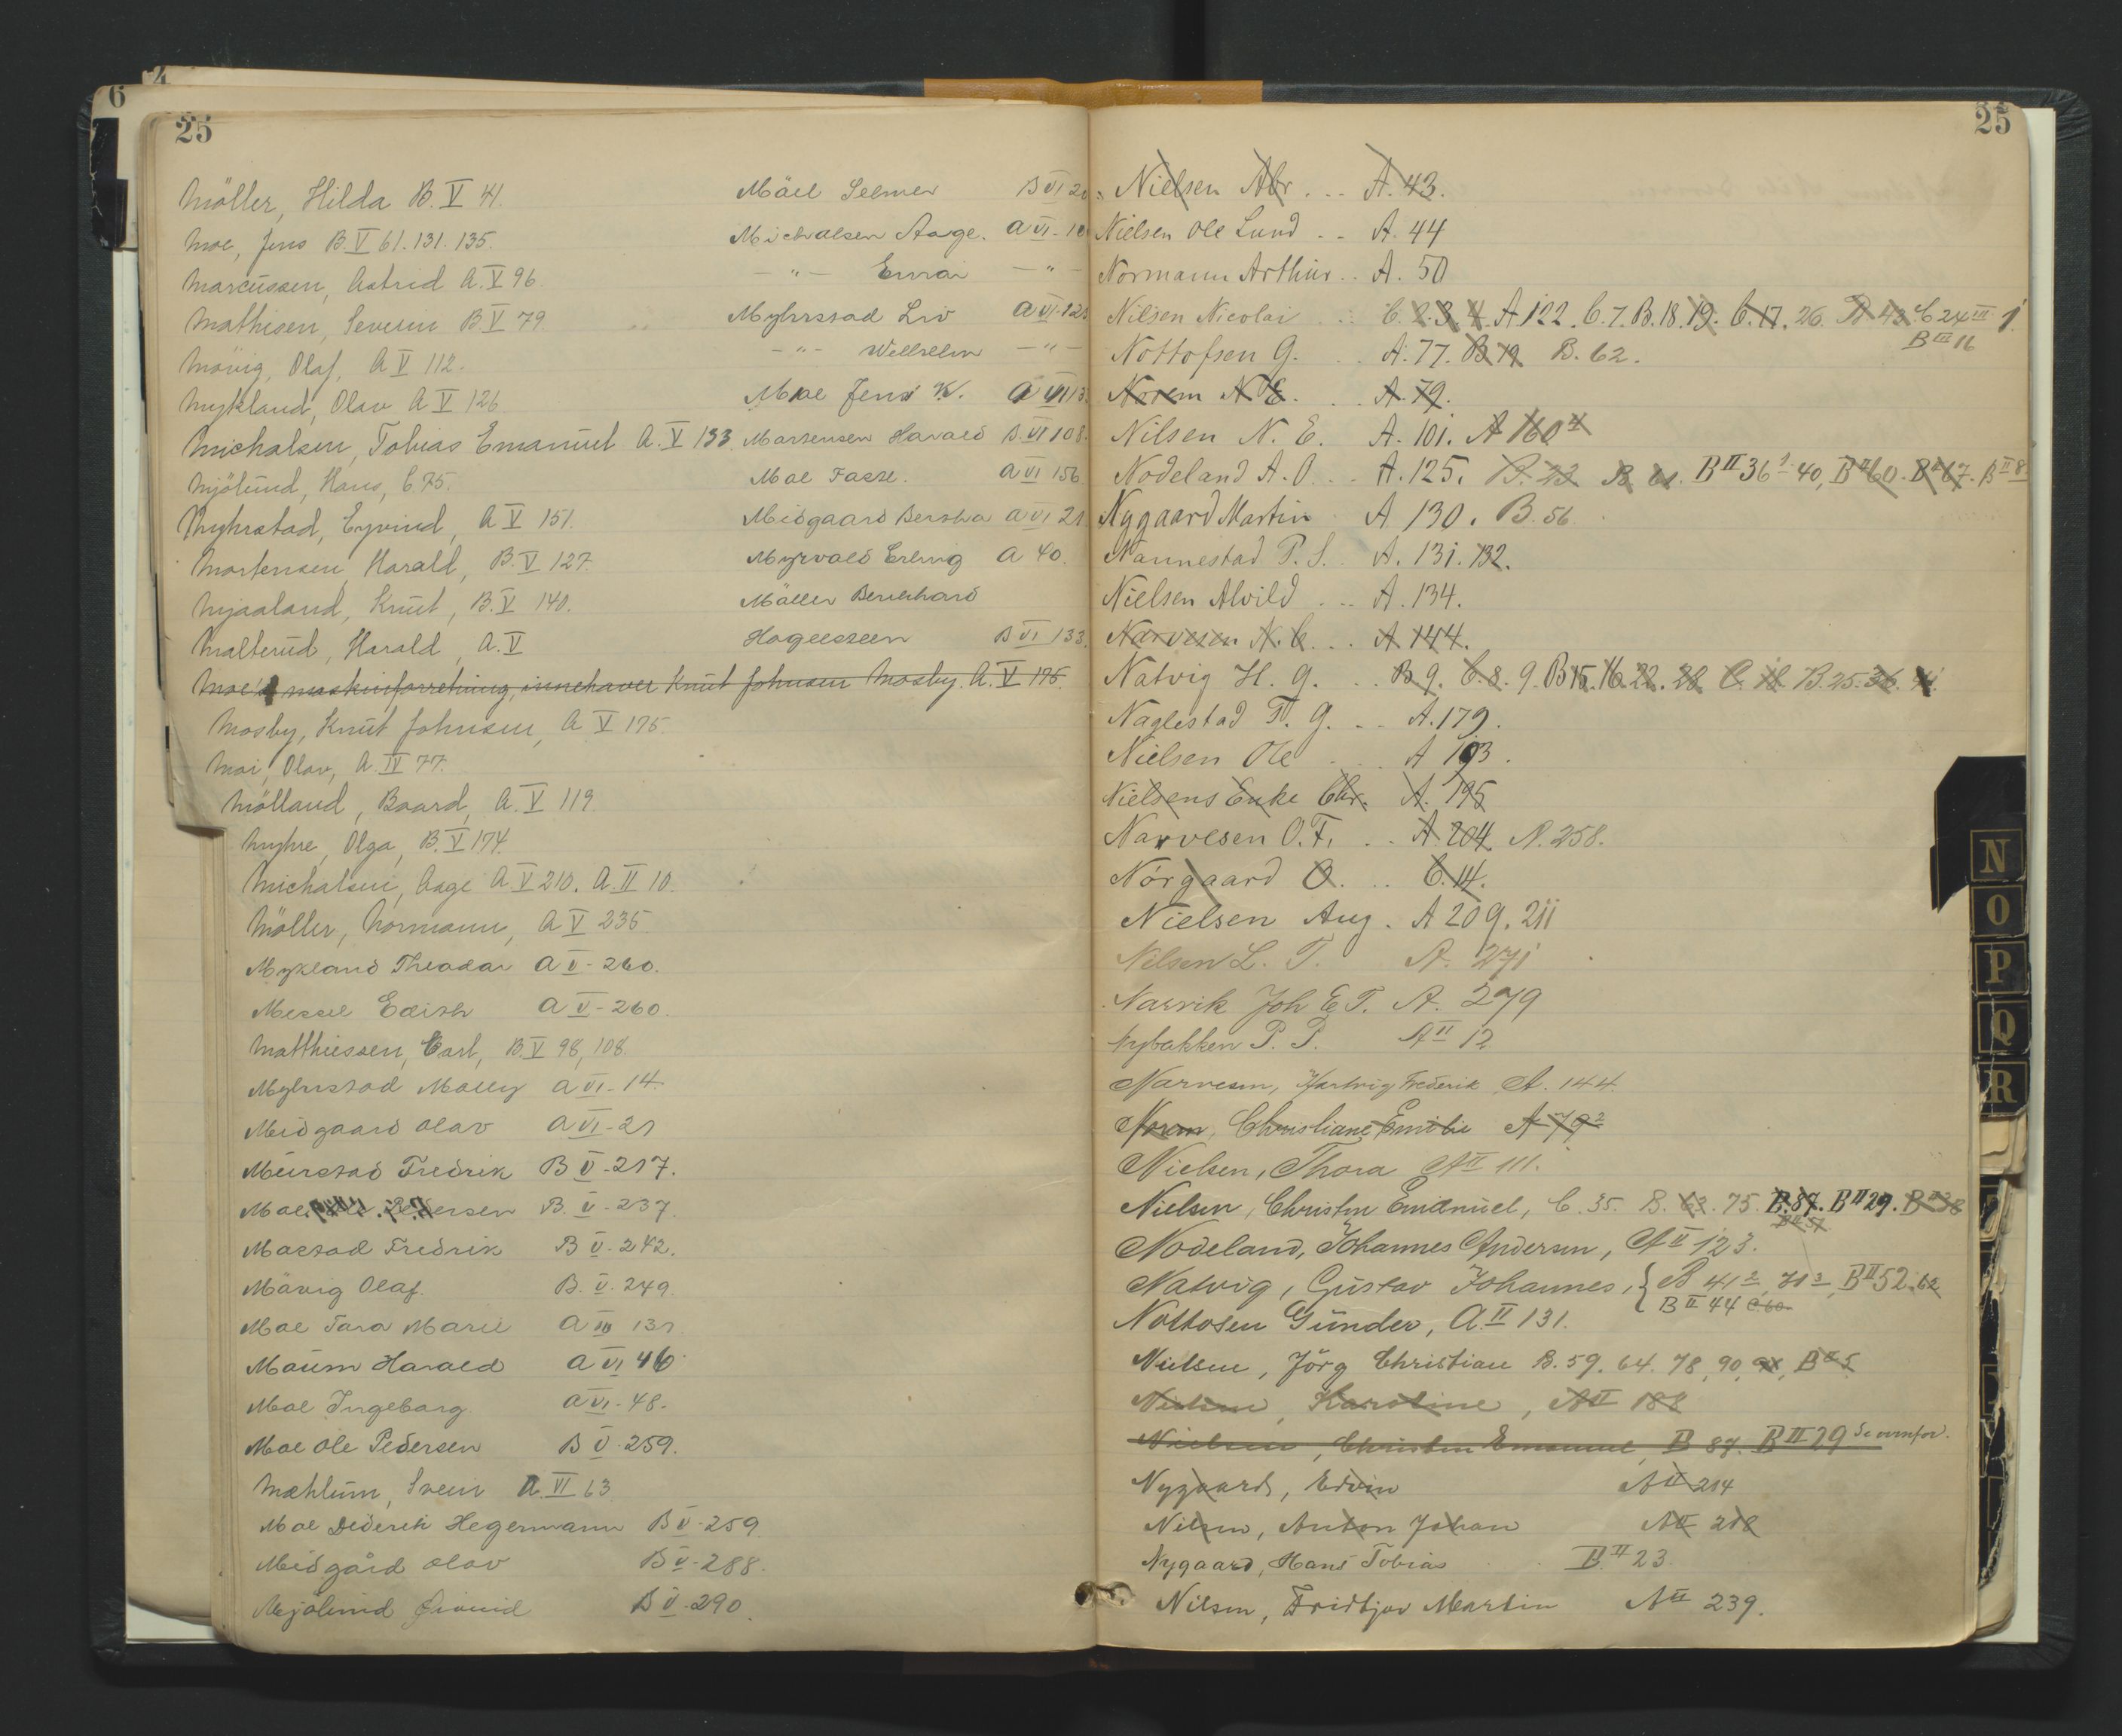 25
Möller, Hilda B. V 41.
Moe, Jens B. V 61. 131. 135.
Marcussen, Astrid A. V 96
Mathisen, Severin B V 79
Mövig, Olaf, A V 112.
Mykland, Olav A V 126
Michalsen, Tobias Emanuel A. V 133
Mjölund, Hans, C. 75.
Myhrstad, Eyvind, A V 151.
Mortensen, Harald, B. V 127.
Mjaaland, Knut, B. V 140.
Malterud, Harald, A. V
Moe's maskinforretning, innehaver Knut Johnsen Mosby. A. V 175.
Mosby, Knut Johnsen, A V 175.
Moi, Olav, A. IV 77.
Mölland, Baard, A. V 119
Myhre, Olga, B. V 174.
Michalsen, Aage A. V 210. A. II 10.
Möller, Normann, A V 235
Mykland Theodor A V - 260.
Messel Edith A V - 260.
Matthiessen, Carl, B. V 98, 108.
Myhrstad Molly A VI - 14.
Midgaard Olav A VI - 21
Meirstad Fredrik B V - 217.
Moe Pedersen B. V - 237.
Mostad Fredrik B V - 242.
Mövig Olaf. B. V. 249.
Moe Tora Marie A III 131
Moum Harald A VI 46
Moe Ingeborg. A VI - 48.
Moe Ole Pedersen B V - 259.
Mæhlum, Svein A. VI 63
Moe Diderich Hegermann B V - 259.
Midgård Olav B V - 288.
Mjölund Eivind B V - 290.
Möll Selmer B VI 20
Michalsen Aage. A VI - 10
— " — Emai — " —
Myhrstad Liv A VI - 121
— " — Wilhelm — " —
Moe Jens K. A VI 13
Mortensen Harald B. VI 108.
Moe Tasse. A VI 156
Midgaard Bertha A VI 21
Myrvold Erling A 40.
Möller Bernhard
Hogeesteen B VI 133.
25
Nielsen Abr. . . . A. 43.
Nielsen Ole Lund . . A. 44
Normann Arthur . . A. 50
Nilsen Nicolai . . . C. 2. 3. 4. A 122. C. 7. B. 18. 19. C. 17. 26. B 43. C 24 III 1.
B III 16
Nottofsen G. . . A. 77. B. 19 B. 62.
Norem N E. . . A. 79.
Nilsen N. E. A. 101. A 160 4
Nodeland A. O. . . A. 125. B. 23 B. 61. B II 36 1. 40, B II 60. B II 67. B II 8
Nygaard Martin A. 130. B. 56
Nannestad P. S. . A. 131. 132.
Nielsen Alvild . . . A. 134.
Narvesen N. C. . . A. 144.
Natvig H. G. . . B. 9. C. 8. 9. B 15. 16. 22. 28. C. 18. B. 25. 36. 41.
Naglestad T. G. . . A. 179.
Nielsen Ole . . A 193.
Nielsens Enke Chr. A. 195
Narvesen O. F. . . A. 204. A. 258.
Nörgaard O. . . C. 14.
Nielsen Aug. A 209. 211
Nilsen L. T. A. 271
Narvik Joh E T. A. 279
Nybakken P. P. A II 12
Narvesen, Hartvig Frederik A. 144.
Norem, Christiane Emilie A 79 2
Nielsen, Thora A II 111.
Nielsen, Christen Emanuel, C. 35. B. 63. 75. B. 87. B II 29. B II 38
B II 57
Nodeland, Johannes Andersen, A II 123.
Natvig, Gustav Johannes, { B 41 2, 71 2, B II 52. 62
B II 44 C. 60
Nottosen Gunder, A. II 131.
Nielsen, Jörg Christian B. 59. 64. 78, 90, 91, B II 5
Nielsen, Karoline, A II 188
Nielsen, Christen Emanuel, B 87. B II 29 Se ovenfor.
Nygaard, Edvin A II 214
Nilsen, Anton Johan A II 218
Nygaard, Hans Tobias . . B II 23.
Nilsen, Fridtjov Martin A II 239.
N
O
P
Q
R